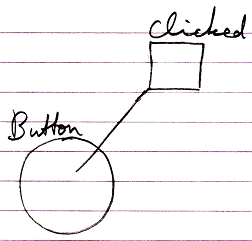 Clicked
Button